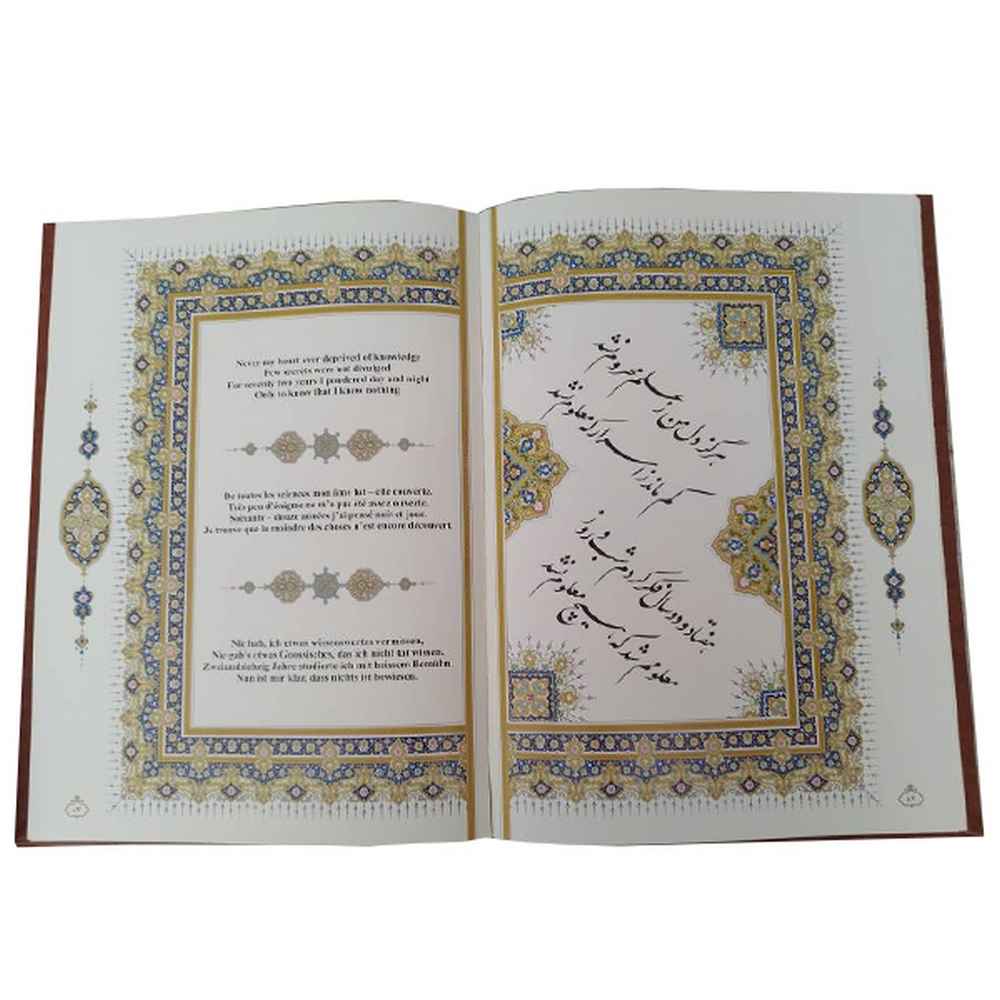 Never my heart ever deprived of knowledge
Few secrets were not divulged
For seventy two years I pondered day and night
Only to know that I know nothing
De toutes les sciences mon âme fut – elle couverte,
Très peu d'énigme ne m'a pas été assez ouverte.
Soixante – douze années j'ai pensé nuit et jour,
Je trouve que la moindre des choses n'est encore découvert.
Nie hab, ich etwas wissenswertes vermissen,
Nie gab's etwas das ich nicht tat wissen.
Zweiundsiebzig Jahre studierte ich mit heissem Bemühn,
Nun ist mir klar, dass nichts ist bewiesen.
هرگز دل من ز علم محروم نشد
کم ماند ز اسرار که معلوم نشد
هفتاد و دو سال فکر کردم شب و روز
معلومم شد که هیچ معلوم نشد